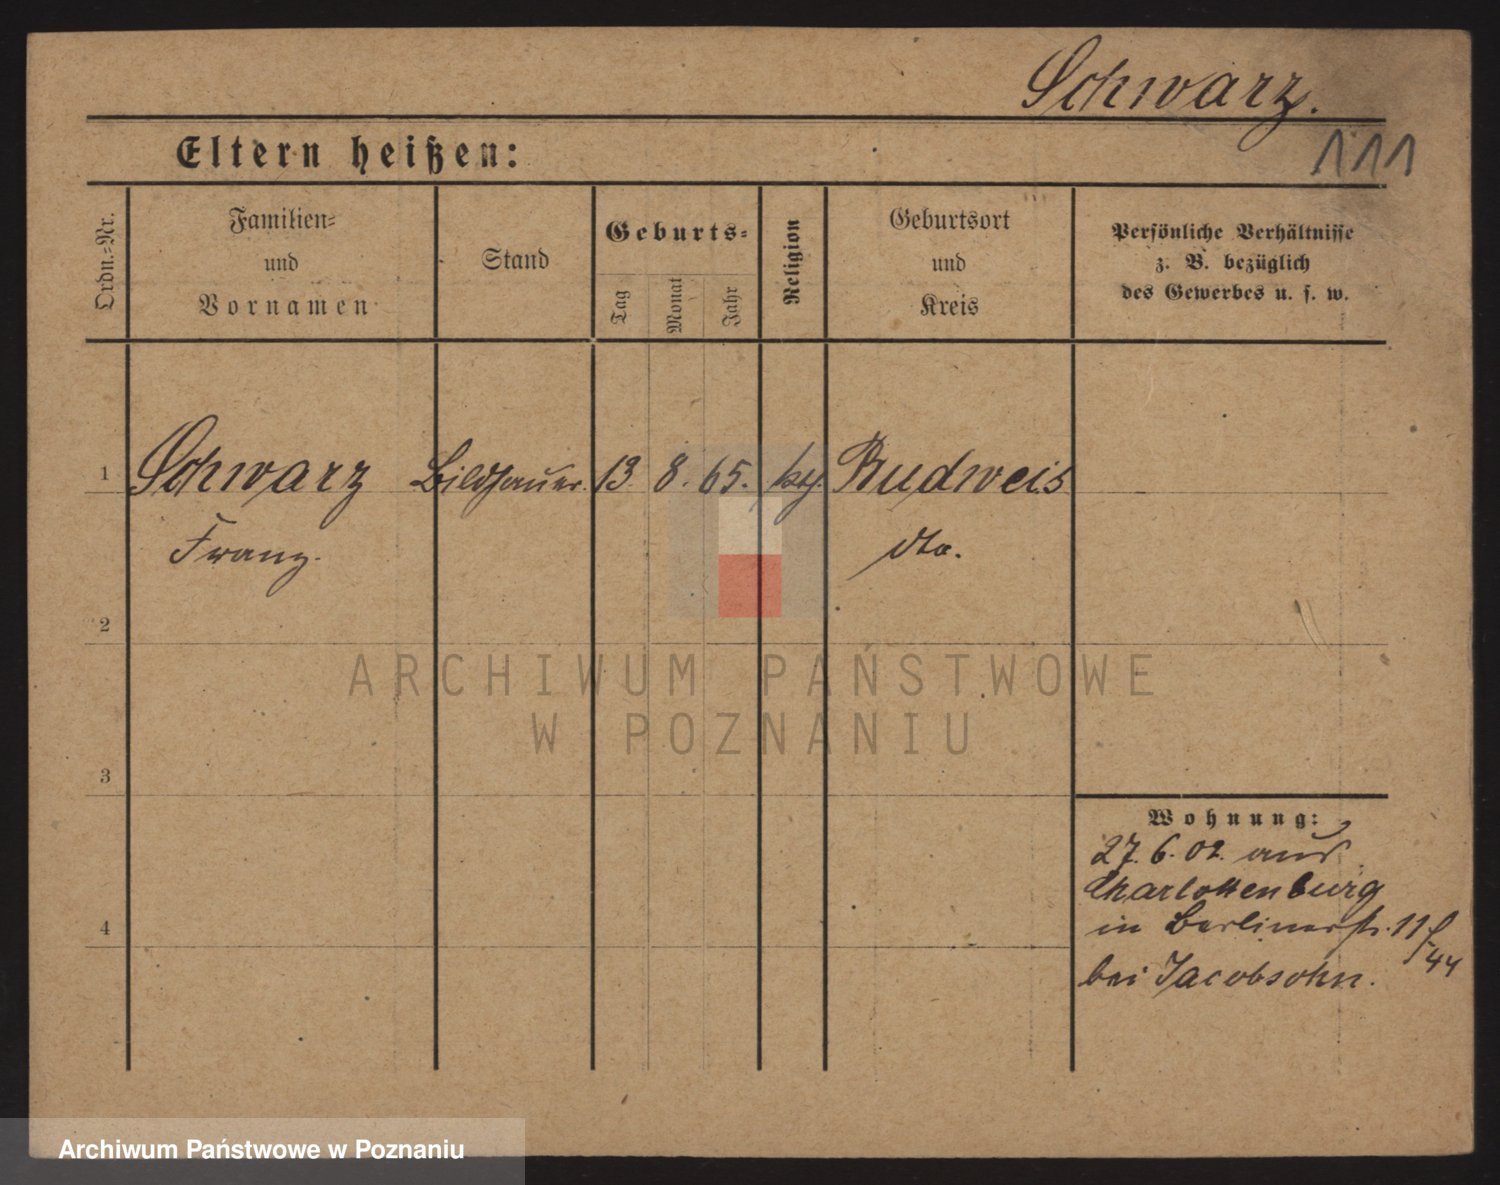 Schwarz.
111
Eltern heißen:
Ordn.-Nr.
Familien-
und
Vornamen
Stand
Geburts-
Tag
Monat
Jahr
Religion
Geburtsort
und
Kreis
Persönliche Verhältnisse
z. B. bezüglich
des Gewerbes u. s. w.
1 Schwarz Bildhauer. 13. 8. 65. kth. Budweis
Franz. dto.
2
ARCHIWUM PAŃSTWOWE
W POZNANIU
3
Wohnung:
27. 6. 02. aus
Charlottenburg
4 in Berlinerstr. 11
44
bei Jacobsohn.
Archiwum Państwowe w Poznaniu